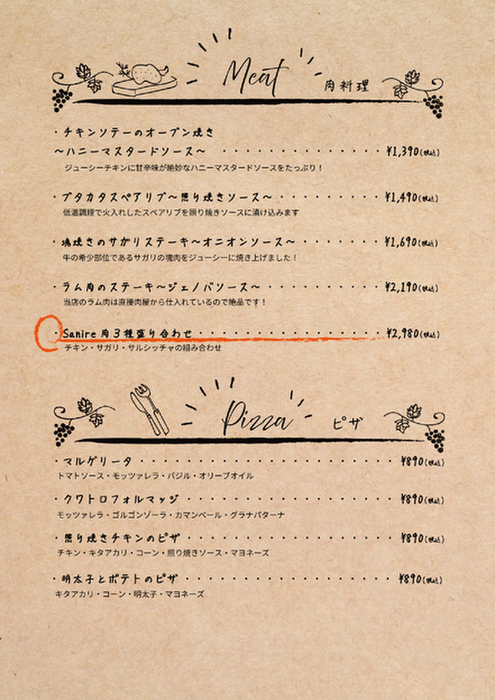 Meat 肉料理
・チキンソテーのオーブン焼き
〜ハニーマスタードソース〜 ・・・・・・・・・・・・・・ ¥1,390(税込)
ジューシーチキンに甘辛味が絶妙なハニーマスタードソースをたっぷり！
・ブタカタスペアリブ〜照り焼きソース〜 ・・・・・・・・・ ¥1,490(税込)
低温調理で火入れしたスペアリブを照り焼きソースに漬け込みます
・塊焼きのサガリステーキ〜オニオンソース〜 ・・・・・・・ ¥1,690(税込)
牛の希少部位であるサガリの塊肉をジューシーに焼き上げました！
・ラム肉のステーキ〜ジェノバソース〜 ・・・・・・・・・・ ¥2,190(税込)
当店のラム肉は直接肉屋から仕入れているので絶品です！
・Sanire 肉３種盛り合わせ ・・・・・・・・・・・・・・・ ¥2,980(税込)
チキン・サガリ・サルシッチャの組み合わせ
Pizza ピザ
・マルゲリータ ・・・・・・・・・・・・・・・・・・・・ ¥890(税込)
トマトソース・モッツァレラ・バジル・オリーブオイル
・クワトロフォルマッジ ・・・・・・・・・・・・・・・・ ¥890(税込)
モッツァレラ・ゴルゴンゾーラ・カマンベール・グラナパダーナ
・照り焼きチキンのピザ ・・・・・・・・・・・・・・・・ ¥890(税込)
チキン・キタアカリ・コーン・照り焼きソース・マヨネーズ
・明太子とポテトのピザ ・・・・・・・・・・・・・・・・ ¥890(税込)
キタアカリ・コーン・明太子・マヨネーズ